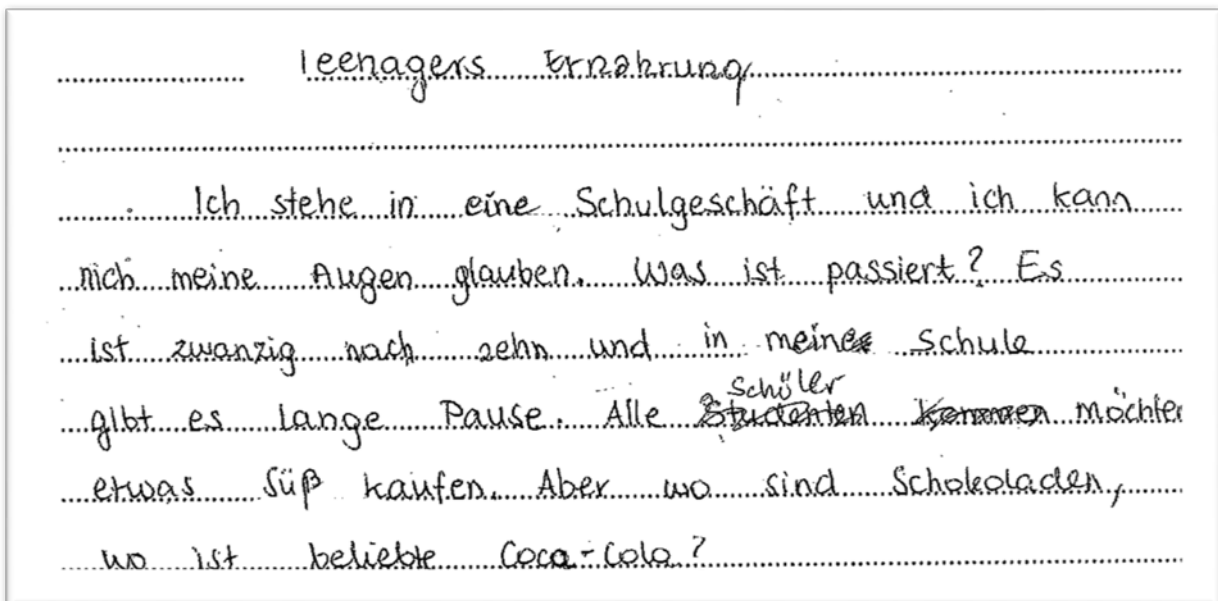 Teenagers Ernährung
Ich stehe in eine Schulgeschäft und ich kann
nich meine Augen glauben. Was ist passiert? Es
ist zwanzig nach zehn und in meine Schule
gibt es lange Pause. Alle Schüler möchten
etwas Süß kaufen. Aber wo sind Schokoladen,
wo ist beliebte Coca-Cola?